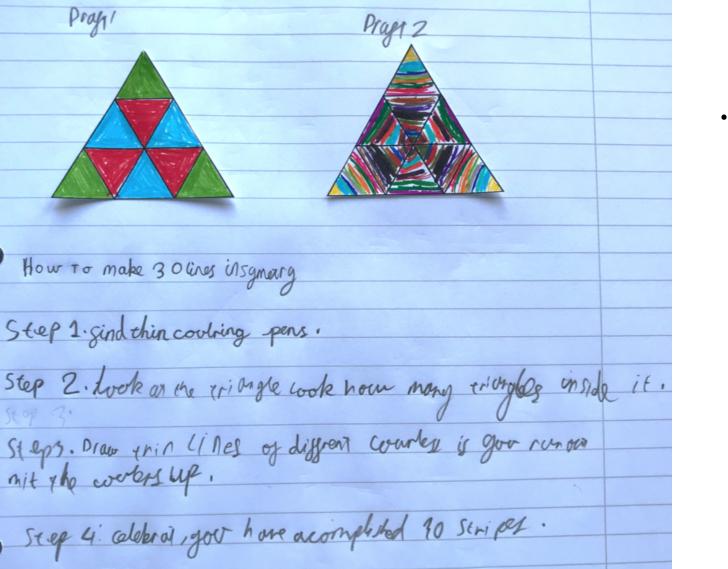 Draft 1
Draft 2
How to make 30 lines insymetry
Step 1. find thin coolring pens.
Step 2. Look at the triangle look how many triangles inside it.
Step 3.
Step 3. Draw thin lines of diffrent if you run out
mix the up.
Step 4: celebrat, you have acomplished 30 stripes.